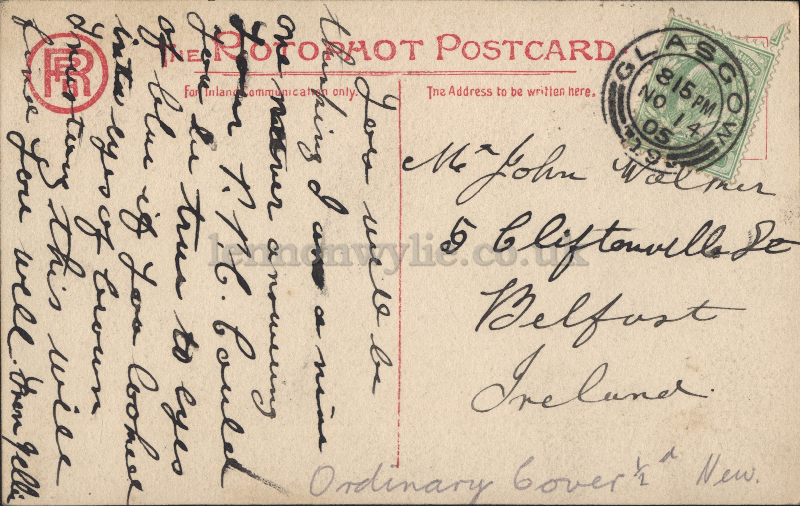 THE ROTOPHOT POSTCARD
For Inland Communication only.
The Address to be written here.
GLASGOW
8 15 PM
NO 14
05
Mr John Walmer
5 Cliftonville St
Belfast
Ireland
You will be
thinking I am a nine
one never anowering
your P.P.C. Could
you be true to eyes
of blue if you looked
into eyes of brown
Trusting this will
find you well. from Nellie
Ordinary Cover ½d New.
lennonwylie.co.uk